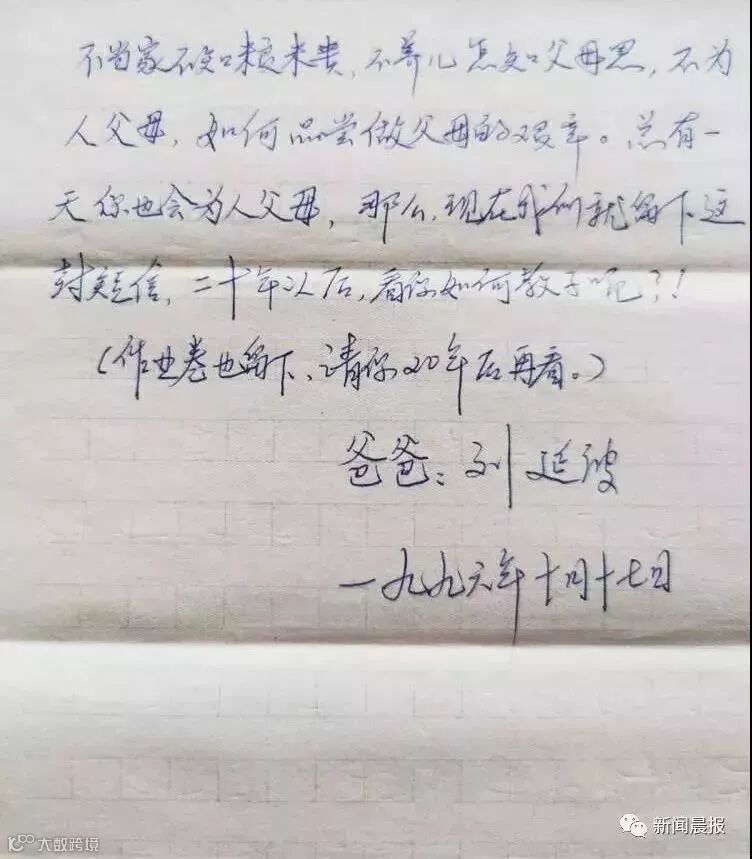 不当家不知柴米贵，不养儿怎知父母恩，不为
人父母，如何品尝做父母的艰辛。总有一
天你也会为人父母，那么，现在我们就留下这
封短信，二十年以后，看你如何教子呢？！
（作业卷也留下、请你20年后再看。）
爸爸：刘延波
一九九六年十月十七日
新闻晨报
大数跨境